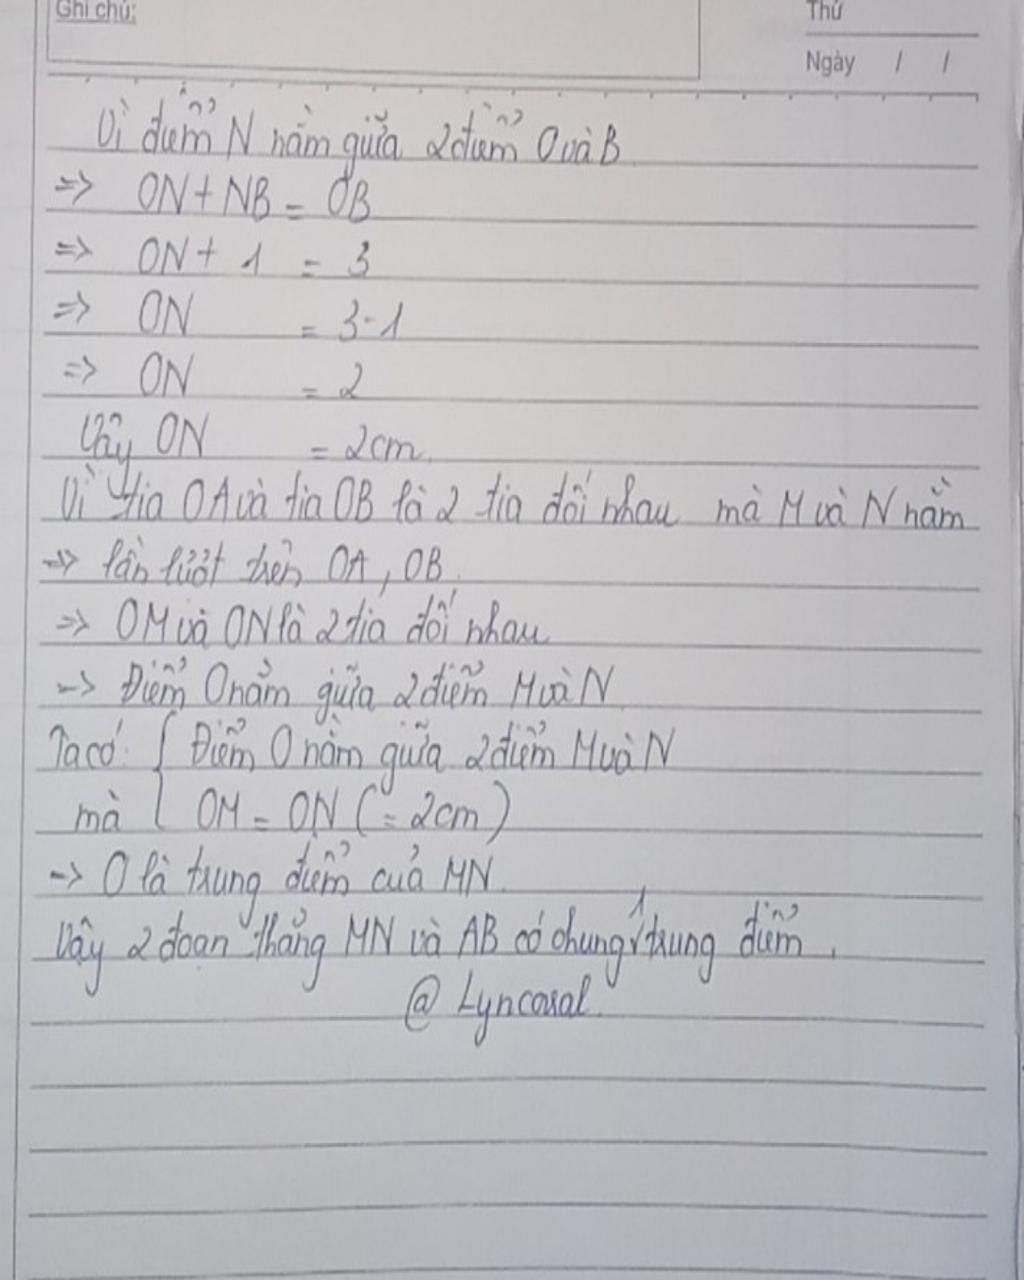 Ghi chú:
Thứ
Ngày / /
Vì điểm N nằm giữa 2 điểm O và B
=> ON + NB = OB
=> ON + 1 = 3
=> ON = 3-1
=> ON = 2
Vậy ON = 2cm.
Vì tia OA và tia OB là 2 tia đối nhau mà M và N nằm
=> lần lượt trên OA, OB
=> OM và ON là 2 tia đối nhau
-> Điểm O nằm giữa 2 điểm M và N
Ta có: { Điểm O nằm giữa 2 điểm M và N
mà { OM = ON (= 2cm)
-> O là trung điểm của MN.
Vậy 2 đoạn thẳng MN và AB có chung 1 trung điểm.
@